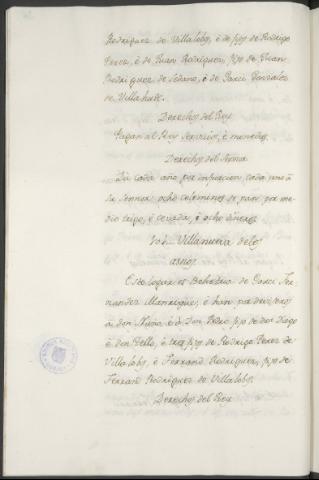 Rodriguez de Villalobos, é de fijo de Rodrigo
Perez, é de Juan Rodriguez, fijo de Juan
Rodriguez de é de Garci Gonzalez
de
Derechos del Rey
Pagan al Rey servicio, é monedas
Derechos del Señor
Dá cada año por infurcion, cada uno á
su Señor ocho celemines de pan, por me-
dio trigo, é cevada, é ocho dineros
Villanueva de los
asnos
Este logar es Behetria de Garci Fer-
nandez Manrique, é han por
á don Nuño, é á Don Pedro fijo de don Diego
é don Tello, é tres fijos de Rodrigo Perez de
Villalobos, é Ferrand Rodriguez, fijo de
Ferran Rodriguez de Villalobos.
Derechos del Rey